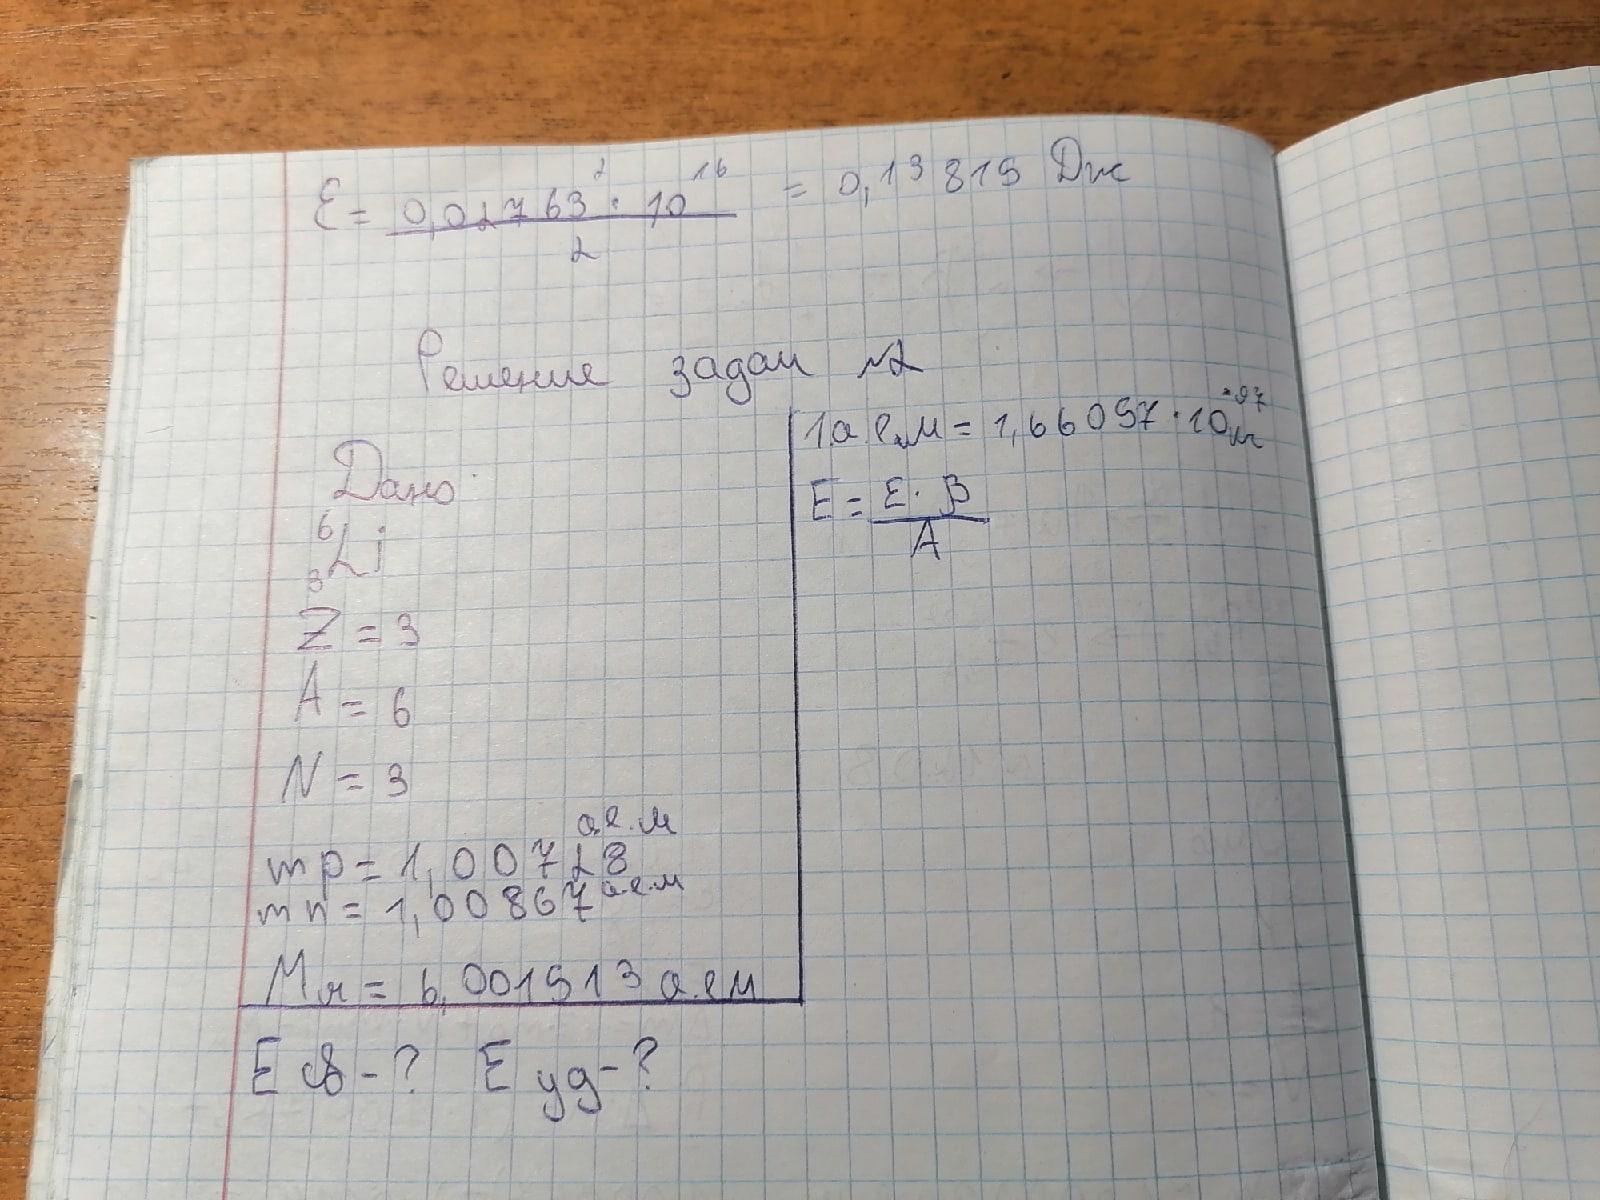 ε = 0,02763² · 10¹⁶ / 2 = 0,13819 Дж
Решение задач №2
Дано:
⁶₃Li
Z = 3
A = 6
N = 3
mp = 1,00728 а.е.м
mn = 1,00867 а.е.м
Mя = 6,001513 а.е.м
E св - ? E уд - ?
1 а.е.м = 1,66057 · 10⁻²⁷ кг
E = E · β / A